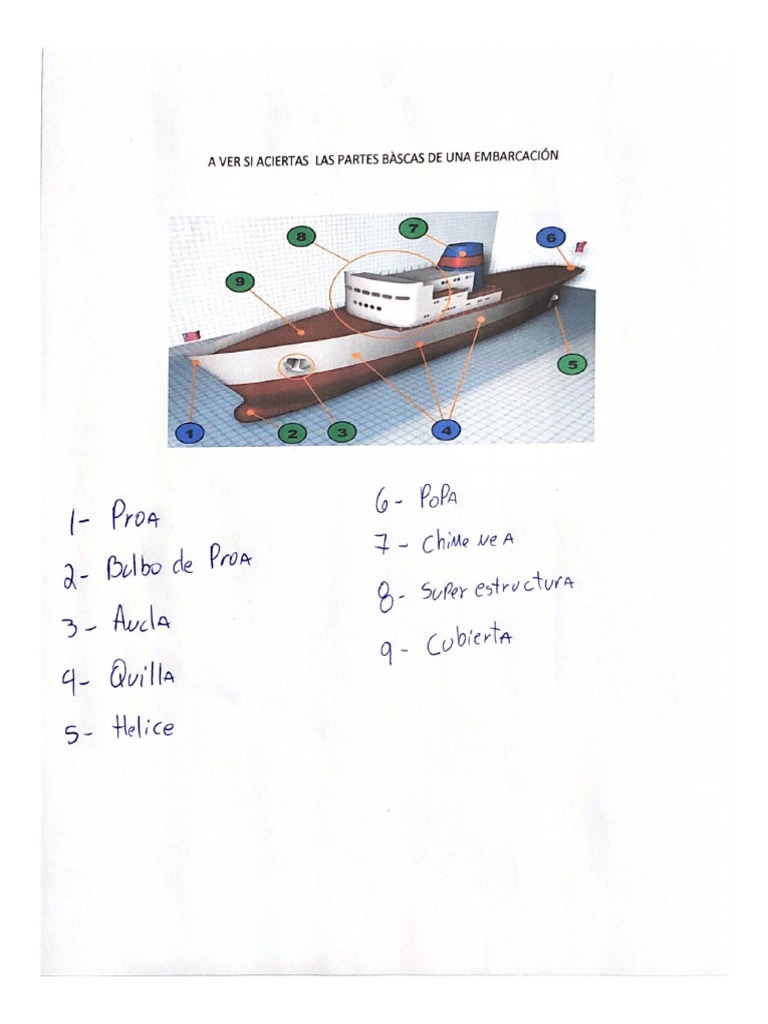 A VER SI ACIERTAS LAS PARTES BÀSCAS DE UNA EMBARCACIÓN
8
7
6
9
5
1
2
3
4
1- Proa
2- Bulbo de Proa
3- Ancla
4- Quilla
5- Helice
6- Popa
7- Chimenea
8- Super estructura
9- Cubierta